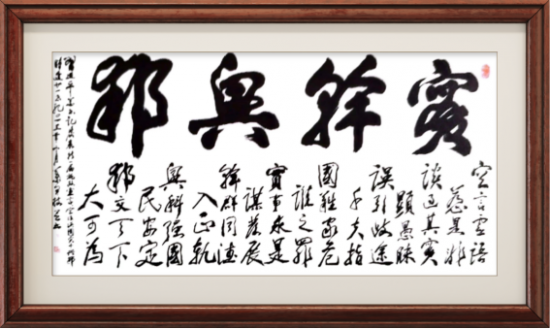 實幹興邦
空言虛語
惹是非
談过其實
顯愚昧
誤引歧途
千夫指
國難家危
誰之罪
實事求是
謀發展
幹群同德
入正軌
興科強國
民安定
邦交天下
大可為